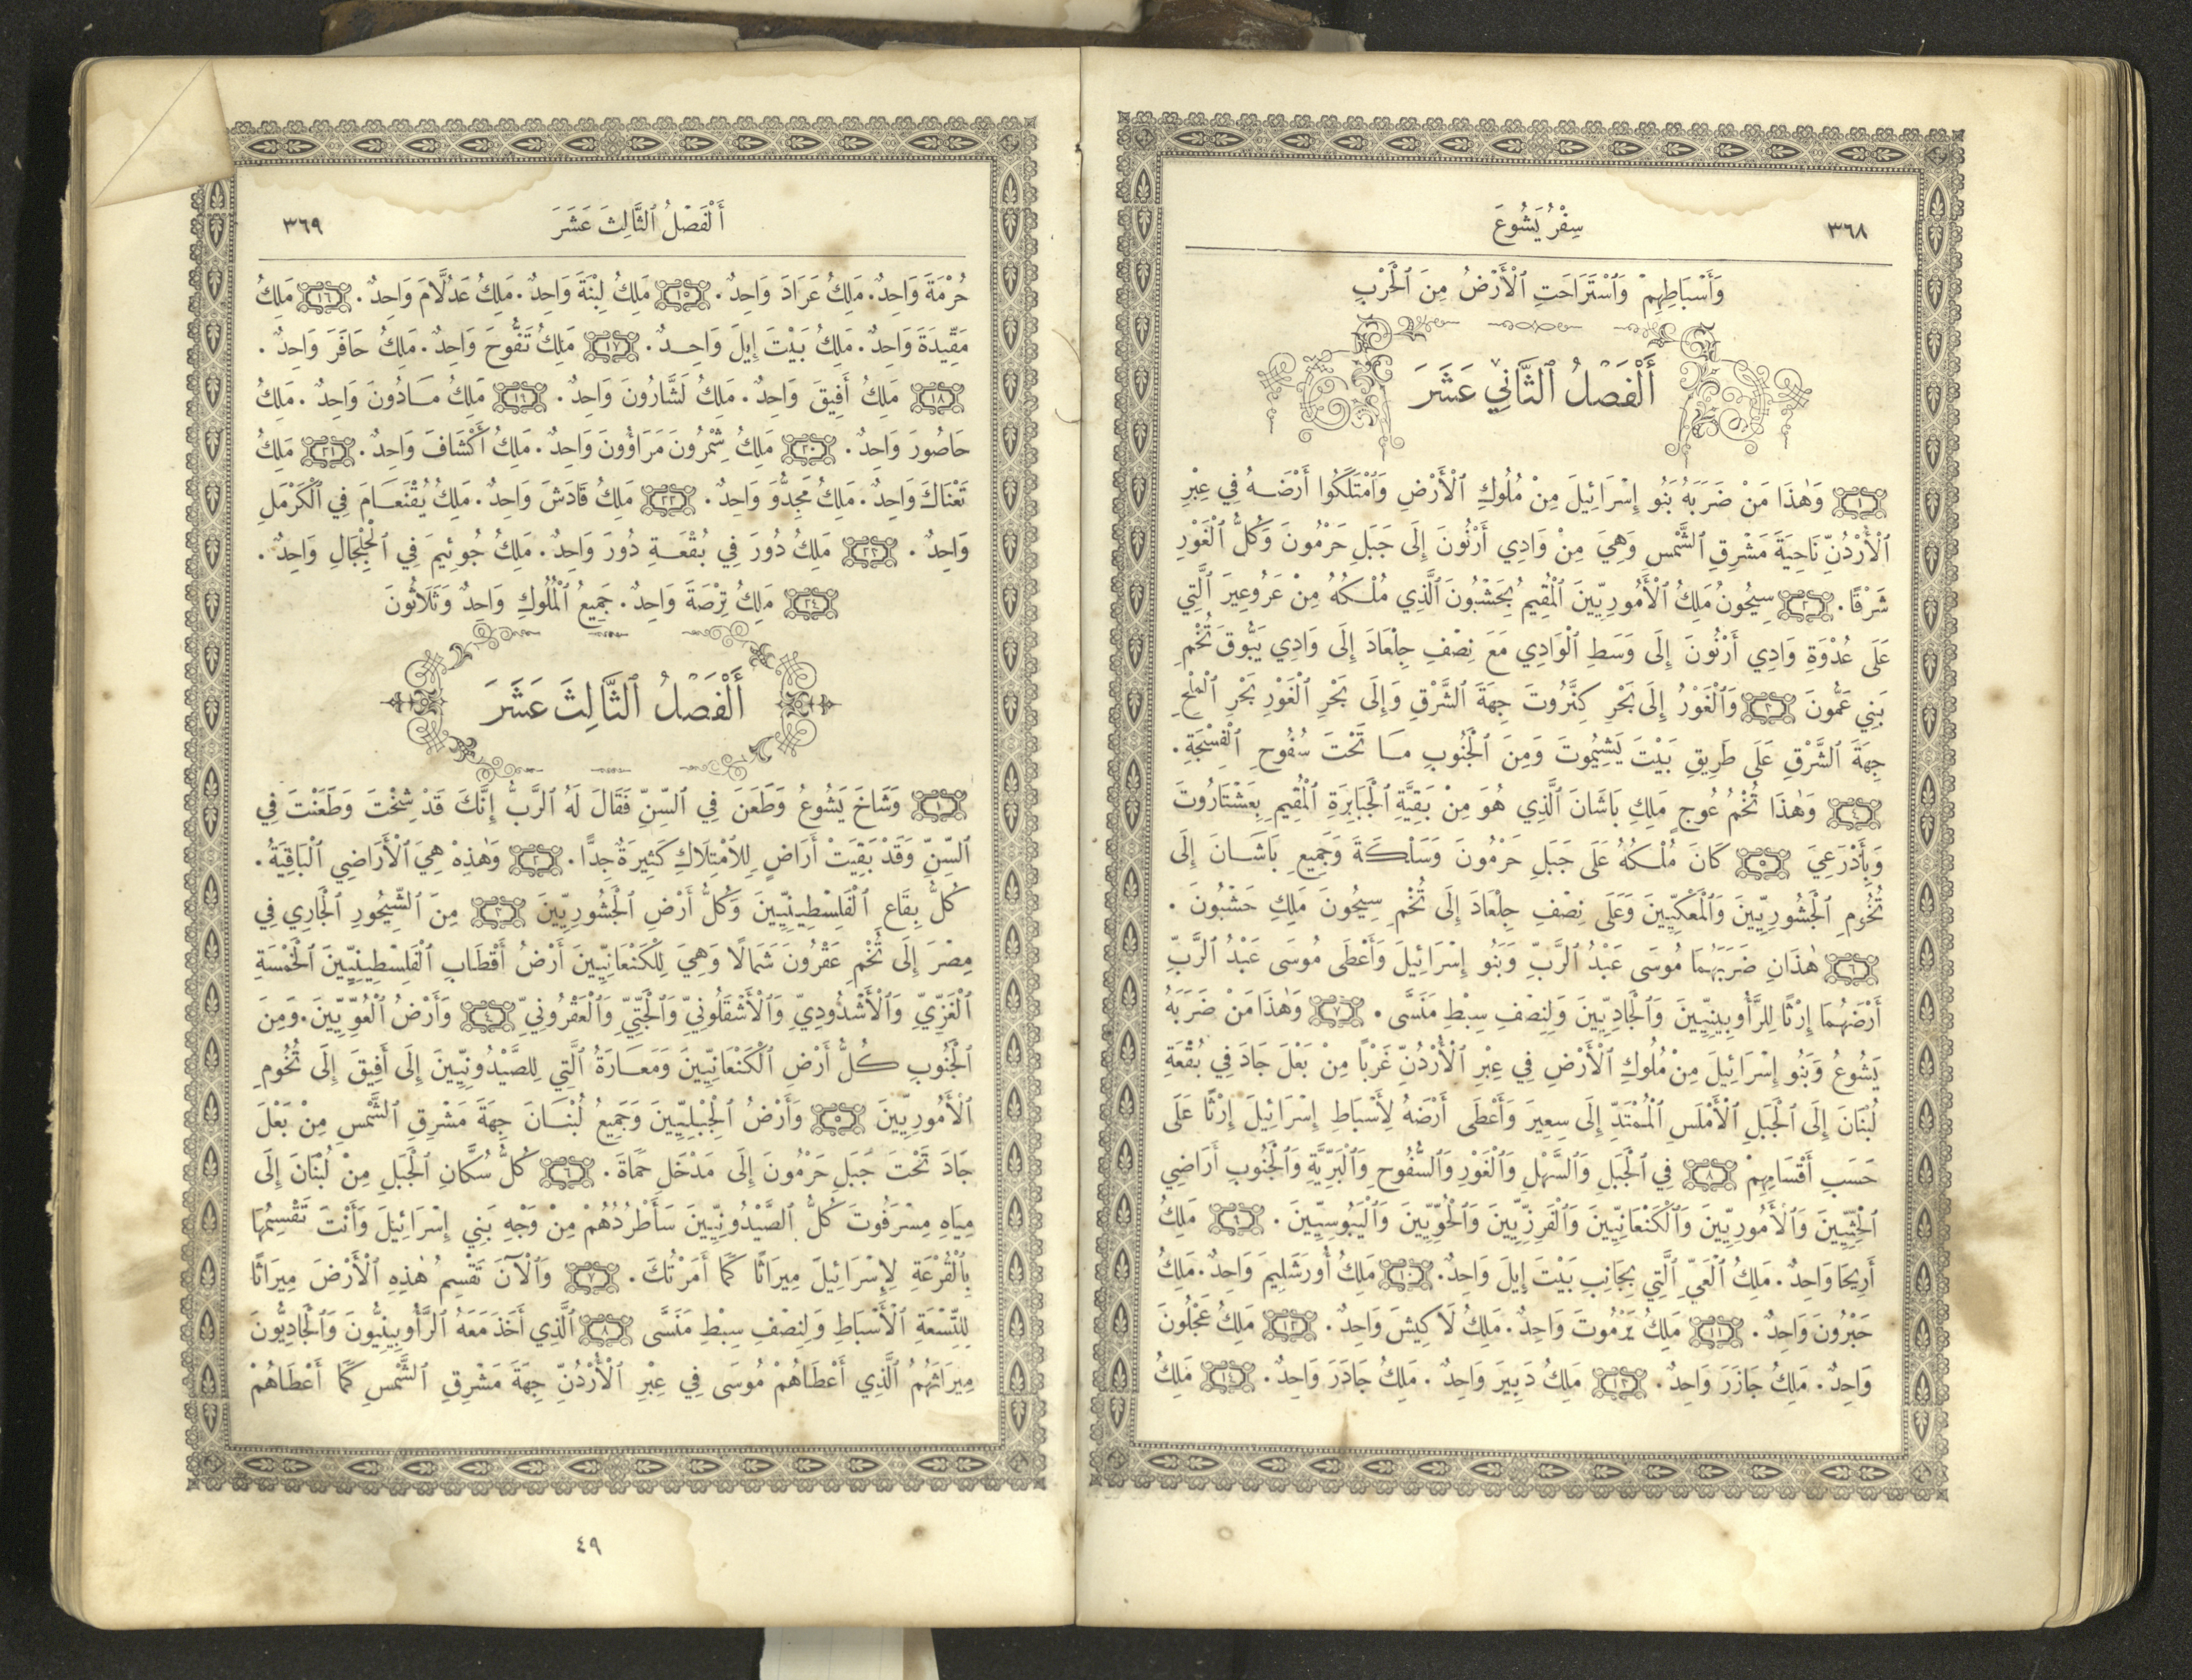 ٣٦٨
سِفْرُ يَشُوعَ
وَأَسْبَاطِهِمْ وَٱسْتَرَاحَتِ ٱلْأَرْضُ مِنَ ٱلْحَرْبِ
أَلْفَصْلُ ٱلثَّانِي عَشَرَ
١ وَهٰذَا مَنْ ضَرَبَهُ بَنُو إِسْرَائِيلَ مِنْ مُلُوكِ ٱلْأَرْضِ وَٱمْتَلَكُوا أَرْضَهُ فِي عِبْرِ
ٱلْأُرْدُنِّ نَاحِيَةَ مَشْرِقِ ٱلشَّمْسِ وَهِيَ مِنْ وَادِي أَرْنُونَ إِلَى جَبَلِ حَرْمُونَ وَكُلُّ ٱلْغَوْرِ
شَرْقًا. ٢ سِيحُونُ مَلِكُ ٱلْأَمُورِيِّينَ ٱلْمُقِيمُ بِحَشْبُونَ ٱلَّذِي مُلْكُهُ مِنْ عَرُوعِيرَ ٱلَّتِي
عَلَى عُدْوَةِ وَادِي أَرْنُونَ إِلَى وَسَطِ ٱلْوَادِي مَعَ نِصْفِ جِلْعَادَ إِلَى وَادِي يَبُّوقَ تُخْمِ
بَنِي عَمُّونَ ٣ وَٱلْغَوْرُ إِلَى بَحْرِ كِنَّرُوتَ جِهَةَ ٱلشَّرْقِ وَإِلَى بَحْرِ ٱلْغَوْرِ بَحْرِ ٱلْمِلْحِ
جِهَةَ ٱلشَّرْقِ عَلَى طَرِيقِ بَيْتَ يَشِيمُوتَ وَمِنَ ٱلْجَنُوبِ مَا تَحْتَ سُفُوحِ ٱلْفِسْجَةِ.
٤ وَهٰذَا تُخْمُ عُوجٍ مَلِكِ بَاشَانَ ٱلَّذِي هُوَ مِنْ بَقِيَّةِ ٱلْجَبَابِرَةِ ٱلْمُقِيمِ بِعَشْتَارُوتَ
وَبِأَذْرَعِيَ ٥ كَانَ مُلْكُهُ عَلَى جَبَلِ حَرْمُونَ وَسَلْكَةَ وَجَمِيعِ بَاشَانَ إِلَى
تُخُومِ ٱلْجَشُورِيِّينَ وَٱلْمَعْكِيِّينَ وَعَلَى نِصْفِ جِلْعَادَ إِلَى تُخْمِ سِيحُونَ مَلِكِ حَشْبُونَ.
٦ هٰذَانِ ضَرَبَهُمَا مُوسَى عَبْدُ ٱلرَّبِّ وَبَنُو إِسْرَائِيلَ وَأَعْطَى مُوسَى عَبْدُ ٱلرَّبِّ
أَرْضَهُمَا إِرْثًا لِلرَّأُوبِينِيِّينَ وَٱلْجَادِيِّينَ وَلِنِصْفِ سِبْطِ مَنَسَّى. ٧ وَهٰذَا مَنْ ضَرَبَهُ
يَشُوعُ وَبَنُو إِسْرَائِيلَ مِنْ مُلُوكِ ٱلْأَرْضِ فِي عِبْرِ ٱلْأُرْدُنِّ غَرْبًا مِنْ بَعْلَ جَادَ فِي بُقْعَةِ
لُبْنَانَ إِلَى ٱلْجَبَلِ ٱلْأَمْلَسِ ٱلْمُمْتَدِّ إِلَى سِعِيرَ وَأَعْطَى أَرْضَهُ لِأَسْبَاطِ إِسْرَائِيلَ إِرْثًا عَلَى
حَسَبِ أَقْسَامِهِمْ ٨ فِي ٱلْجَبَلِ وَٱلسَّهْلِ وَٱلْغَوْرِ وَٱلسُّفُوحِ وَٱلْبَرِّيَّةِ وَٱلْجَنُوبِ أَرَاضِي
ٱلْحِثِّيِّينَ وَٱلْأَمُورِيِّينَ وَٱلْكَنْعَانِيِّينَ وَٱلْفَرِزِّيِّينَ وَٱلْحُوِّيِّينَ وَٱلْيَبُوسِيِّينَ. ٩ مَلِكُ
أَرِيحَا وَاحِدٌ. مَلِكُ ٱلْعَيِّ ٱلَّتِي بِجَانِبِ بَيْتَ إِيلَ وَاحِدٌ. ١٠ مَلِكُ أُورَشَلِيمَ وَاحِدٌ. مَلِكُ
حَبْرُونَ وَاحِدٌ. ١١ مَلِكُ يَرْمُوتَ وَاحِدٌ. مَلِكُ لَاكِيشَ وَاحِدٌ. ١٢ مَلِكُ عَجْلُونَ
وَاحِدٌ. مَلِكُ جَازَرَ وَاحِدٌ. ١٣ مَلِكُ دَبِيرَ وَاحِدٌ. مَلِكُ جَادَرَ وَاحِدٌ. ١٤ مَلِكُ
أَلْفَصْلُ ٱلثَّالِثَ عَشَرَ
٣٦٩
حُرْمَةَ وَاحِدٌ. مَلِكُ عَرَادَ وَاحِدٌ. ١٥ مَلِكُ لِبْنَةَ وَاحِدٌ. مَلِكُ عَدُلَّامَ وَاحِدٌ. ١٦ مَلِكُ
مَقِّيدَةَ وَاحِدٌ. مَلِكُ بَيْتَ إِيلَ وَاحِدٌ. ١٧ مَلِكُ تَفُّوحَ وَاحِدٌ. مَلِكُ حَافَرَ وَاحِدٌ.
١٨ مَلِكُ أَفِيقَ وَاحِدٌ. مَلِكُ لَشَّارُونَ وَاحِدٌ. ١٩ مَلِكُ مَادُونَ وَاحِدٌ. مَلِكُ
حَاصُورَ وَاحِدٌ. ٢٠ مَلِكُ شِمْرُونَ مَرَأُوونَ وَاحِدٌ. مَلِكُ أَكْشَافَ وَاحِدٌ. ٢١ مَلِكُ
تَعْنَاكَ وَاحِدٌ. مَلِكُ مَجِدُّوَ وَاحِدٌ. ٢٢ مَلِكُ قَادَشَ وَاحِدٌ. مَلِكُ يُقْنَعَامَ فِي ٱلْكَرْمَلِ
وَاحِدٌ. ٢٣ مَلِكُ دُورَ فِي بُقْعَةِ دُورَ وَاحِدٌ. مَلِكُ جُوئِيمَ فِي ٱلْجِلْجَالِ وَاحِدٌ.
٢٤ مَلِكُ تِرْصَةَ وَاحِدٌ. جَمِيعُ ٱلْمُلُوكِ وَاحِدٌ وَثَلَاثُونَ
أَلْفَصْلُ ٱلثَّالِثَ عَشَرَ
١ وَشَاخَ يَشُوعُ وَطَعَنَ فِي ٱلسِّنِّ فَقَالَ لَهُ ٱلرَّبُّ إِنَّكَ قَدْ شِخْتَ وَطَعَنْتَ فِي
ٱلسِّنِّ وَقَدْ بَقِيَتْ أَرَاضٍ لِلِٱمْتِلَاكِ كَثِيرَةٌ جِدًّا. ٢ وَهٰذِهْ هِيَ ٱلْأَرَاضِي ٱلْبَاقِيَةُ.
كُلُّ بِقَاعِ ٱلْفَلِسْطِينِيِّينَ وَكُلُّ أَرْضِ ٱلْجَشُورِيِّينَ ٣ مِنَ ٱلشِّيحُورِ ٱلْجَارِي فِي
مِصْرَ إِلَى تُخْمِ عَقْرُونَ شَمَالًا وَهِيَ لِلْكَنْعَانِيِّينَ أَرْضُ أَقْطَابِ ٱلْفَلِسْطِينِيِّينَ ٱلْخَمْسَةِ
ٱلْغَزِّيِّ وَٱلْأَشْدُودِيِّ وَٱلْأَشْقَلُونِيِّ وَٱلْجَتِّيِّ وَٱلْعَقْرُونِيِّ ٤ وَأَرْضُ ٱلْعُوِّيِّينَ. وَمِنَ
ٱلْجَنُوبِ كُلُّ أَرْضِ ٱلْكَنْعَانِيِّينَ وَمَعَارَةُ ٱلَّتِي لِلصَّيْدُونِيِّينَ إِلَى أَفِيقَ إِلَى تُخُومِ
ٱلْأَمُورِيِّينَ ٥ وَأَرْضُ ٱلْجِبْلِيِّينَ وَجَمِيعُ لُبْنَانَ جِهَةَ مَشْرِقِ ٱلشَّمْسِ مِنْ بَعْلَ
جَادَ تَحْتَ جَبَلِ حَرْمُونَ إِلَى مَدْخَلِ حَمَاةَ. ٦ كُلُّ سُكَّانِ ٱلْجَبَلِ مِنْ لُبْنَانَ إِلَى
مِيَاهِ مِسْرَفُوتَ كُلُّ ٱلصَّيْدُونِيِّينَ سَأَطْرُدُهُمْ مِنْ وَجْهِ بَنِي إِسْرَائِيلَ وَأَنْتَ تَقْسِمُهَا
بِٱلْقُرْعَةِ لِإِسْرَائِيلَ مِيرَاثًا كَمَا أَمَرْتُكَ. ٧ وَٱلْآنَ تَقْسِمُ هٰذِهِ ٱلْأَرْضَ مِيرَاثًا
لِلتِّسْعَةِ ٱلْأَسْبَاطِ وَلِنِصْفِ سِبْطِ مَنَسَّى ٨ ٱلَّذِي أَخَذَ مَعَهُ ٱلرَّأُوبِينِيُّونَ وَٱلْجَادِيُّونَ
مِيرَاثَهُمُ ٱلَّذِي أَعْطَاهُمْ مُوسَى فِي عِبْرِ ٱلْأُرْدُنِّ جِهَةَ مَشْرِقِ ٱلشَّمْسِ كَمَا أَعْطَاهُمْ
٤٩